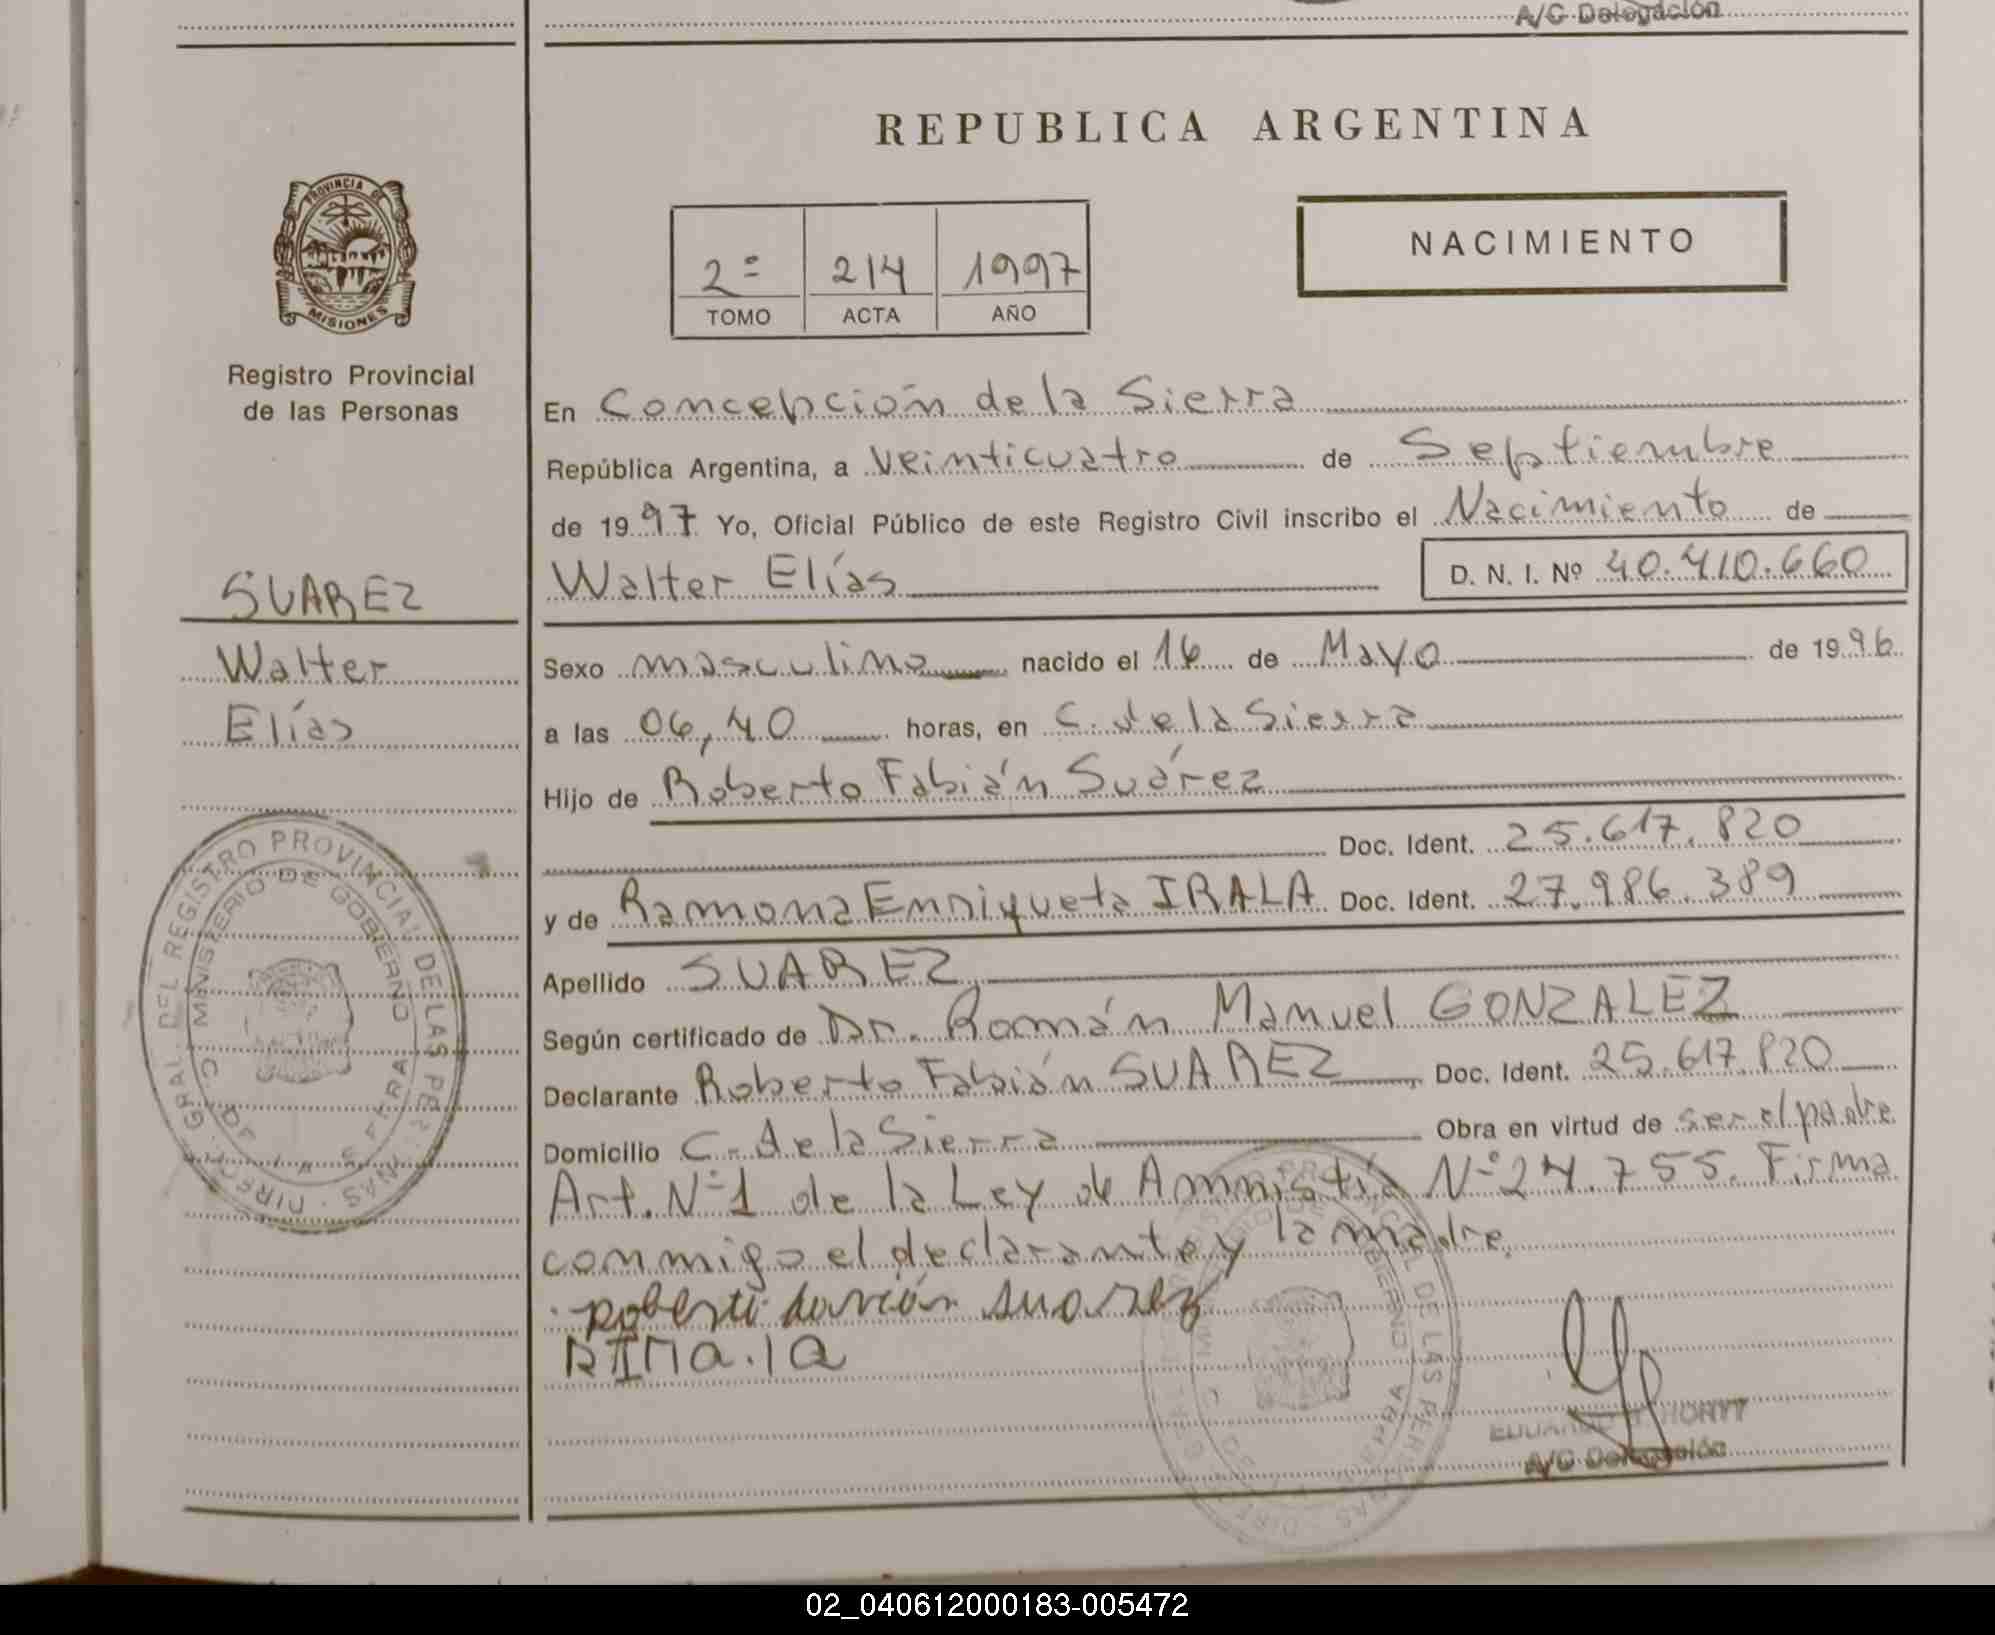 A/C Delegación
REPUBLICA ARGENTINA
PROVINCIA DE
MISIONES
Registro Provincial
de las Personas
NACIMIENTO
2º 214 1997
TOMO ACTA AÑO
En Concepción de la Sierra
República Argentina, a Veinticuatro de Septiembre
de 1997 Yo, Oficial Público de este Registro Civil inscribo el Nacimiento de
Walter Elías D. N. I. Nº 40.410.660
SUAREZ
Walter
Elías
Sexo masculino nacido el 16 de Mayo de 1996
a las 06,40 horas, en C. de la Sierra
Hijo de Roberto Fabián Suárez
Doc. Ident. 25.617.820
y de Ramona Enriqueta IRALA Doc. Ident. 27.986.389
Apellido SUAREZ
Según certificado de Dr. Román Manuel GONZALEZ
Declarante Roberto Fabián SUAREZ Doc. Ident. 25.617.820
Domicilio C. de la Sierra Obra en virtud de ser el padre
Art. Nº 1 de la Ley de Amnistía Nº 24.755. Firma
conmigo el declarante y la madre.
DIRECC. GRAL. DEL REGISTRO PROVINCIAL DE LAS PERSONAS
MINISTERIO DE GOBIERNO
A/C Delegación
02_040612000183-005472